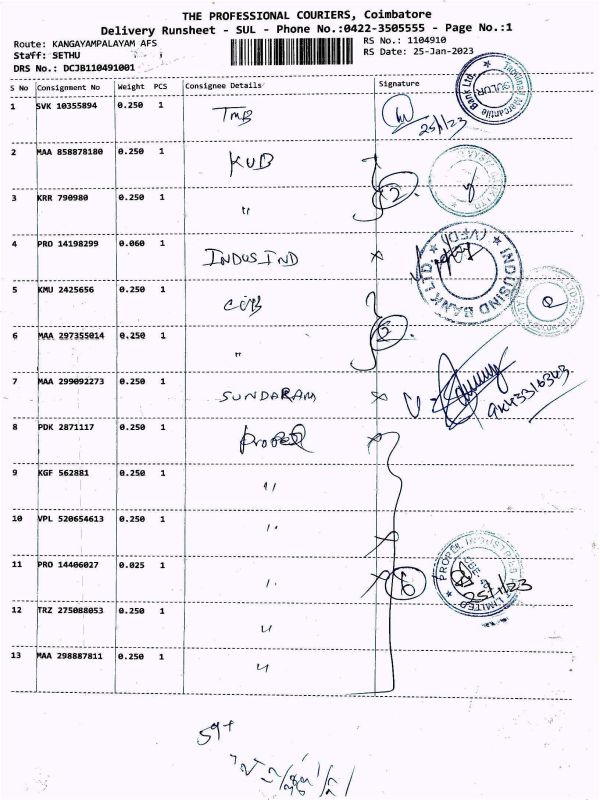 THE PROFESSIONAL COURIERS, Coimbatore
Delivery Runsheet - SUL - Phone No.:0422-3505555 - Page No.:1
Route: KANGAYAMPALAYAM AFS
RS No.: 1104910
Staff: SETHU
RS Date: 25-Jan-2023
DRS No.: DCJB110491001
S No Consignment No Weight PCS Consignee Details Signature
1 SVK 10355894 0.250 1 TMB 25/1/23
Tamilnad Mercantile Bank Ltd. SULUR
2 MAA 858878180 0.250 1 KVB
3 KRR 790980 0.250 1 " 2
4 PRO 14198299 0.060 1 INDUSIND
INDUSIND BANK LTD.
5 KMU 2425656 0.250 1 CUB
6 MAA 297355014 0.250 1 " 2
7 MAA 299092273 0.250 1 SUNDARAM
8 PDK 2871117 0.250 1 Propel
9 KGF 562881 0.250 1 "
10 VPL 520654613 0.250 1 "
11 PRO 14406027 0.025 1 " 6
PROPEL INDUSTRIES LIMITED
25/1/23
12 TRZ 275088053 0.250 1 "
13 MAA 298887811 0.250 1 "